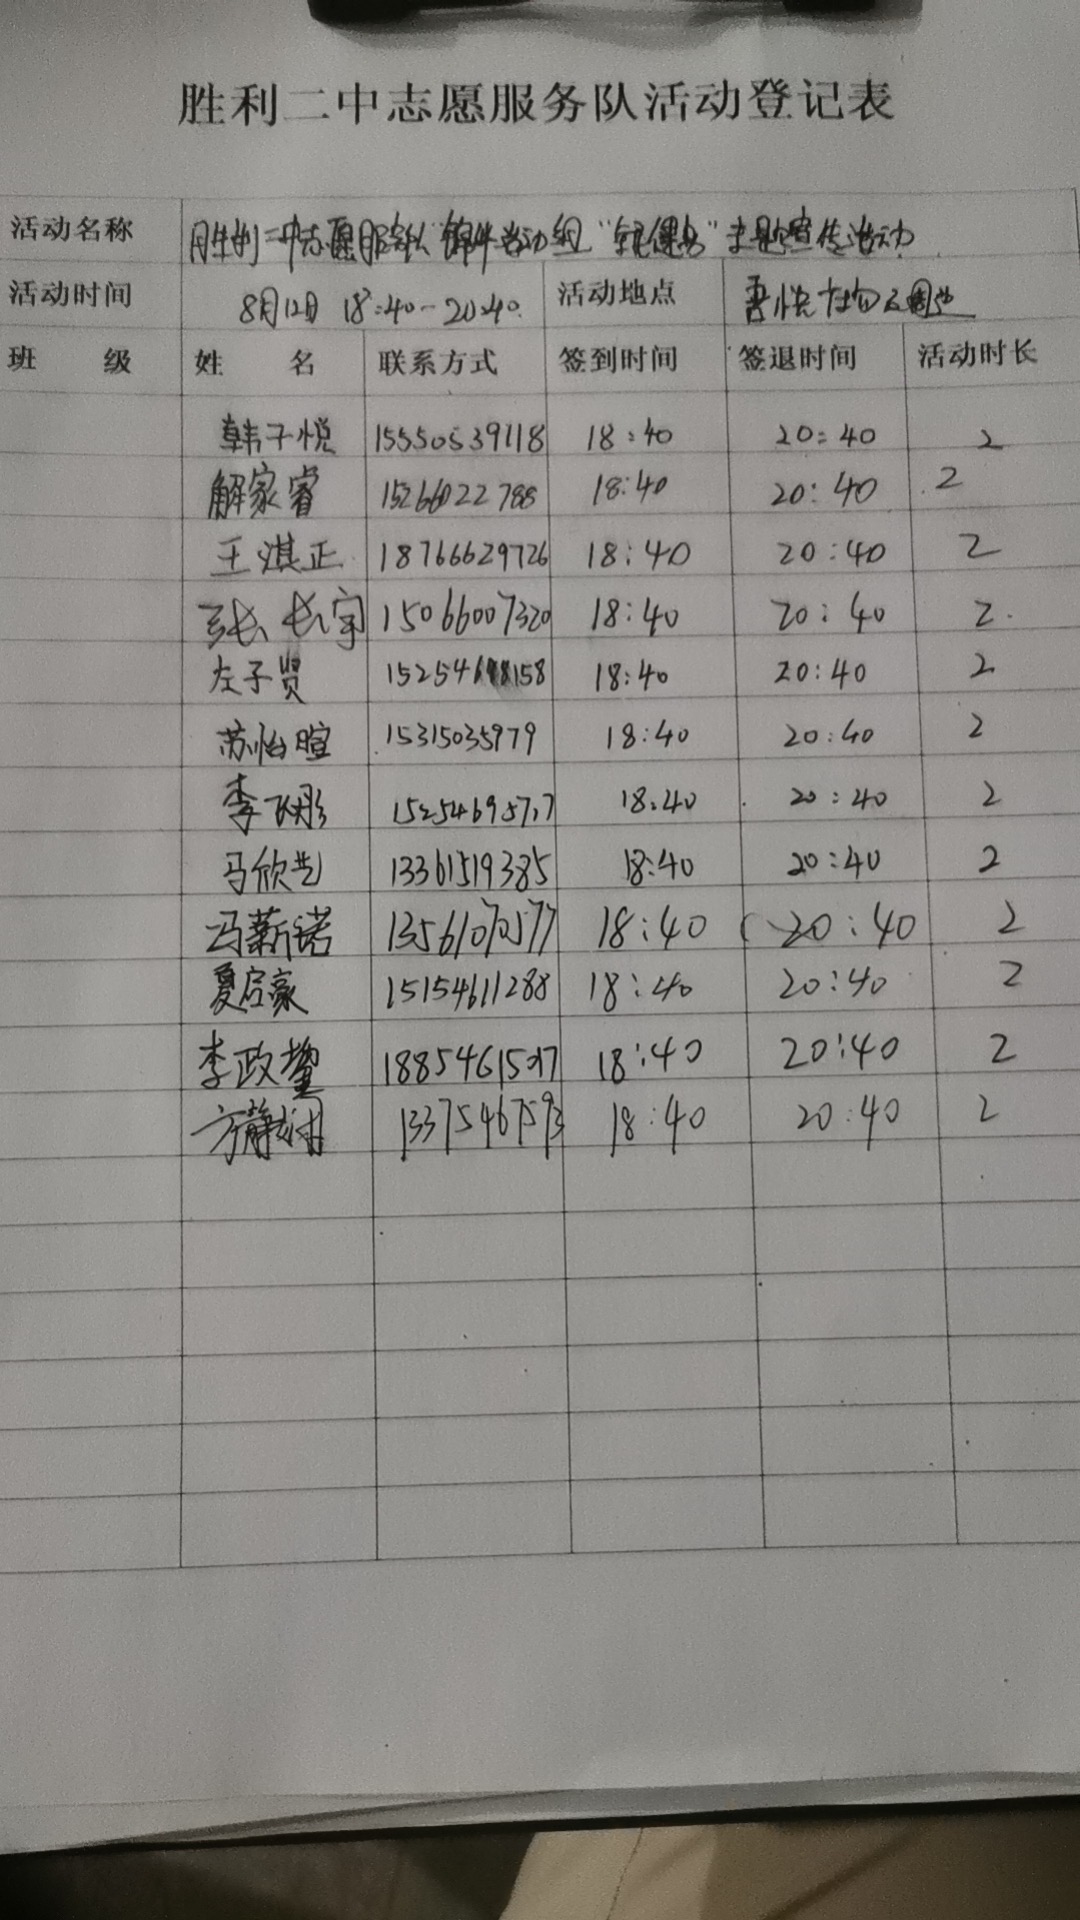 胜利二中志愿服务队活动登记表
活动名称 胜利二中志愿服务队 活动组 "全民健身" 主题宣传活动
活动时间 8月12日 18:40-20:40. 活动地点 吾悦 周边
班 级 姓 名 联系方式 签到时间 签退时间 活动时长
韩子悦 15550539118 18:40 20:40 2
解家睿 15266022788 18:40 20:40 2
王淇正 18766629726 18:40 20:40 2
张长宇 15066007320 18:40 20:40 2
左子贤 18:40 20:40 2
苏怡暄 15315035979 18:40 20:40 2
李飞彤 18:40 20:40 2
马欣艺 13361519385 18:40 20:40 2
冯薪诺 13561070577 18:40 20:40 2
夏启豪 15154611288 18:40 20:40 2
李政 18:40 20:40 2
方静 13375467593 18:40 20:40 2